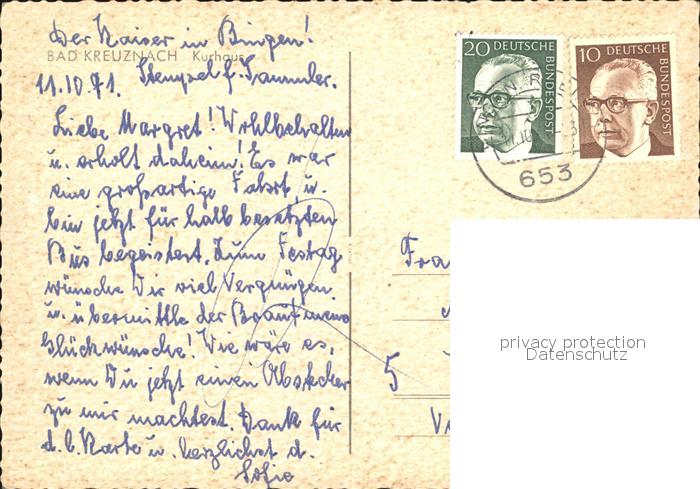 Der Kaiser in Bingen!
BAD KREUZNACH Kurhaus
11.10.71. Stempel f. Sammler.
Liebe Margret! Wohlbehalten
u. erholt daheim! Es war
eine großartige Fahrt, u.
bin jetzt für halb besetzten
Bus begeistert. Zum Festtag
wünsche Dir viel Vergnügen
u. übermittle der Braut meine
Glückwünsche! Wie wäre es,
wenn Du jetzt einen Abstecher
zu mir machtest. Dank für
d. l. Karte u. herzlichst d.
Sofie
20 DEUTSCHE BUNDESPOST
10 DEUTSCHE BUNDESPOST
653
Fra
5
privacy protection
Datenschutz